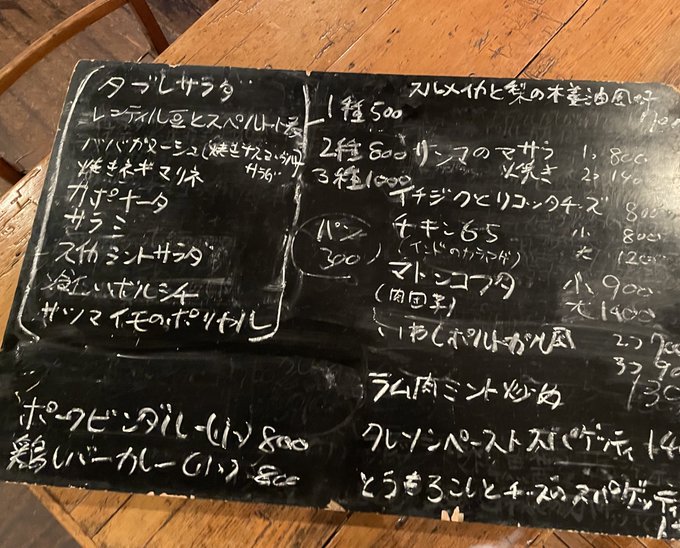 タブレサラダ
レンティル豆とスペルト小麦
ババガヌーシュ(焼きナス
サラダ
焼きネギマリネ
カポナータ
サラミ
スイカミントサラダ
冷たいボルシチ
サツマイモのポリヤル
1種500
2種800
3種1000
パン
300
ポークビンダルー(小) 800
鶏レバーカレー(小) 800
スルメイカと梨の
サンマのマサラ 1つ 800
焼き 2つ 140
イチジクとリコッタチーズ 800
チキン65 小 800
(インドのカラアゲ) 大 1200
マトンコフタ 小 900
(肉団子) 大 1400
いわしポルトガル風 2つ 700
3つ 90
ラム肉ミント炒め 130
クレソンペーストスパゲッティ 14
とうもろこしとチーズのスパゲッティ